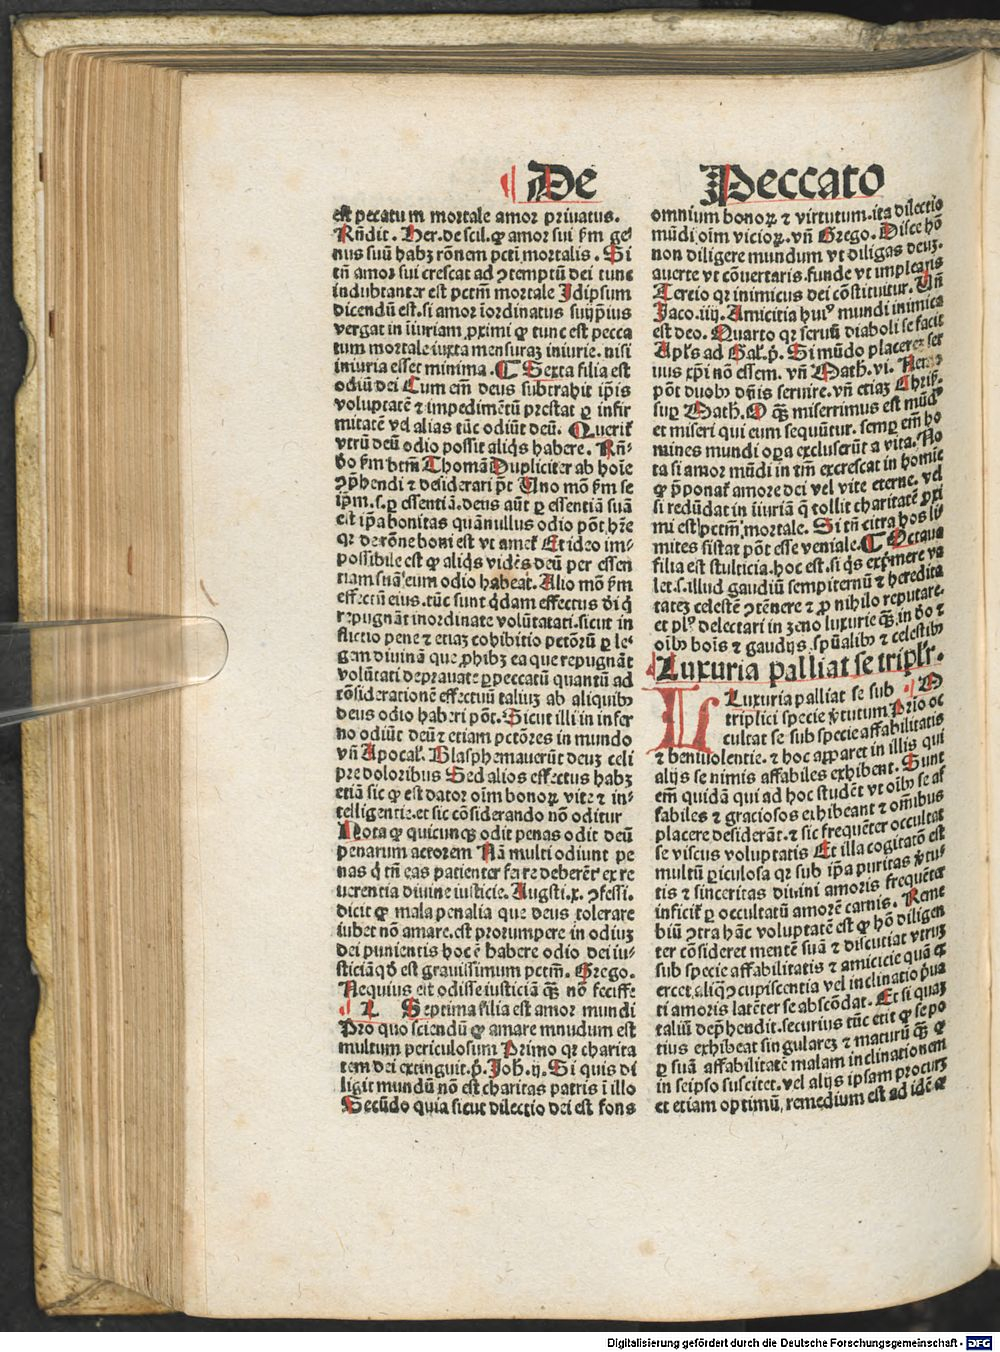 De Peccato
est peccatum mortale amor priuatus.
Rñdit. Her. de scil. ꝙ amor sui ẜm ge⸗
nus suũ habꝫ rõnem pcti mortalis. Si
tñ amor sui crescat ad ꝯtemptũ dei tunc
indubtanter est pctm̃ mortale Idipsum
dicendũ est. si amor ĩordinatus suijp̃ius
vergat in iĩuriam ꝓximi ꝙ tunc est pecca
tum mortale iuxta mensuraꝫ iniurie. nisi
iniuria esset minima. ⸿ Sexta filia est
odiũ dei Cum em̃ deus subtrahit ip̃is
voluptatẽ ⁊ impedimẽtũ prestat ꝑ infir
mitatẽ vel alias tũc odiũt deũ. Querit̃
vtrũ deũ odio possit aliq̃s habere. Rñ⸗
do ẜm btm̃ Thomã Dupliciter ab hoĩe
ꝯp̃hendi ⁊ desiderari p̃t Uno mõ ẜm se
ip̃m. s. ꝑ essentiã. deus aũt ꝑ essentiã suã
est ip̃a bonitas quã nullus odio põt hr̃e
qꝛ de rõne boni est vt amet̃ Et ideo im⸗
possibile est ꝙ aliq̃s vidẽs deũ per essen
tiam suã eum odio habeat. Alio mõ ẜm
effectũ eius. tũc sunt q̃dam effectus dĩ q̃
repugnãt inordinate volũtatati. sicut in
flictio pene ⁊ etiaꝫ cohibitio pctõrũ ꝑ le⸗
gem diuinã que ꝓhibꝫ ea que repugnãt
volũtati deprauate ꝑ peccatũ quantũ ad
cõsiderationẽ effectuũ taliuꝫ ab aliquibꝰ
deus odio haberi põt. Sicut illi in infer
no odiũt deũ ⁊ etiam pctõres in mundo
vñ Apocal̃. Blasphemauerũt deuꝫ celi
pre doloribus Sed alios effectus habꝫ
etiã sic ꝙ est dator oĩm bonoꝝ vite ⁊ in⸗
telligentie. et sic cõsiderando nõ oditur
Nota ꝙ quicunqꝫ odit penas odit deũ
penarum actorem Nã multi odiunt pe
nas q̃ tñ eas patienter ferre deberẽt ex re
uerentia diuine iusticie. Augsti. x. ꝯfessi.
dicit ꝙ mala penalia que deus tolerare
iubet nõ amare. est prorumpere in odiuꝫ
dei punientis hoc ẽ habere odio dei iu⸗
sticiã qd̃ est grauissimum pctm̃. Grego.
Nequius est odisse iusticiã qꝫ nõ fecisse
L Septima filia est amor mundi
Pro quo sciendũ ꝙ amare mnudum est
multum periculosum Primo qꝛ charita
tem dei extinguit. p̃. Joh̃. ij. Si quis di
ligit mundũ nõ est charitas patris ĩ illo
Secũdo quia sicut dilectio dei est fons
omnium bonoꝝ ⁊ virtutum. ita dilectio
mũdi oĩm vicioꝝ. vñ Grego. Disce hõ
non diligere mundum vt diligas deuꝫ.
auerte vt cõuertaris. funde vt implearis
Tercio qꝛ inimicus dei cõstituitur. Uñ
Jaco. iiij. Amicitia huiꝰ mundi inimica
est deo. Quarto qꝛ seruũ diaboli se facit
Apl̃s ad Gal̃. p̃. Si mũdo placerẽ ser
uus xp̃i nõ essem. vñ Math̃. vi. Nemo
põt duobꝰ dñis seruire. vñ etiaꝫ Chriſ̃.
suꝑ Math̃. O qꝫ miserrimus est mũdꝰ
et miseri qui eum sequũtur. semꝑ em̃ ho
mines mundi oꝑa excluserũt a vita. No
ta si amor mũdi in tm̃ excrescat in homie
ꝙ p̃ponat̃ amore dei vel vite eterne. vel
si redũdat in iĩuriã q̃ tollit charitatẽ ꝓxi
mi est pctm̃ mortale. Si tñ citra hos li
mites sistat põt esse veniale. ⸿ Octaua
filia est stulticia. hoc est. si q̃s exp̃mere va
let. s. illud gaudiũ sempiternũ ⁊ heredita
tateꝫ celestẽ ꝯtẽnere ⁊ ꝓ nihilo reputare.
et plꝰ delectari in zeno luxurie qꝫ in dõ ⁊
oĩbꝰ boĩs ⁊ gaudijs sp̃ualibꝰ ⁊ celestibꝰ
Luxuria palliat se tripl̃r.
Luxuria palliat se sub M
triplici specie v̓tutum Prĩo oc
cultat se sub specie affabilitatis
⁊ beniuolentie. ⁊ hoc apparet in illis qui
alijs se nimis affabiles exhibent. Sunt
em̃ quidã qui ad hoc studẽt vt oĩbꝰ se af
fabiles ⁊ graciosos exhibeant ⁊ om̃ibus
placere desiderãt. ⁊ sic frequẽter occultat
se viscus voluptatis Et illa cogitatõ est
multũ ꝑiculosa qꝛ sub ip̃a puritas v̓tu⸗
tis ⁊ sinceritas diuini amoris frequẽter
inficit̃ ꝑ occultatũ amorẽ carnis. Reme
biũ ꝯtra hãc voluptatẽ est ꝙ hõ diligen
ter cõsideret mentẽ suã ⁊ discutiat vtruꝫ
sub specie affabilitatis ⁊ amicicie quã ex
ercet. aliq̃ ꝯcupiscentia vel inclinatio p̃ua
ti amoris latẽter se abscõdat. Et si quaꝫ
taliũ dep̃hendit. securius tũc erit ꝙ se po
tius exhibeat singulareꝫ ⁊ maturũ qꝫ ꝙ
ꝑ suã affabilitatẽ malam inclinationem
in seipso suscitet. vel alijs ipsam procuret
et etiam optimũ remedium est ad idẽ ꝙ
Digitalisierung gefördert durch die Deutsche Forschungsgemeinschaft - DFG